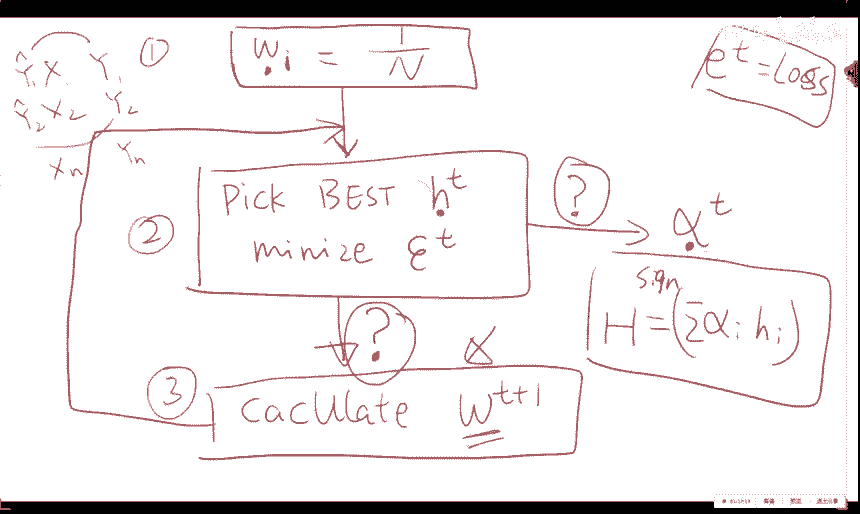 Ŷ₁ X₁ Y₁
Ŷ₂ X₂ Y₂
Xn Yn
① wᵢ = 1/N
eᵗ = Loss
② Pick BEST hᵗ
minize εᵗ
?
αᵗ
sign
H = (Σαᵢ hᵢ)
?
α
③ caculate wᵗ⁺¹